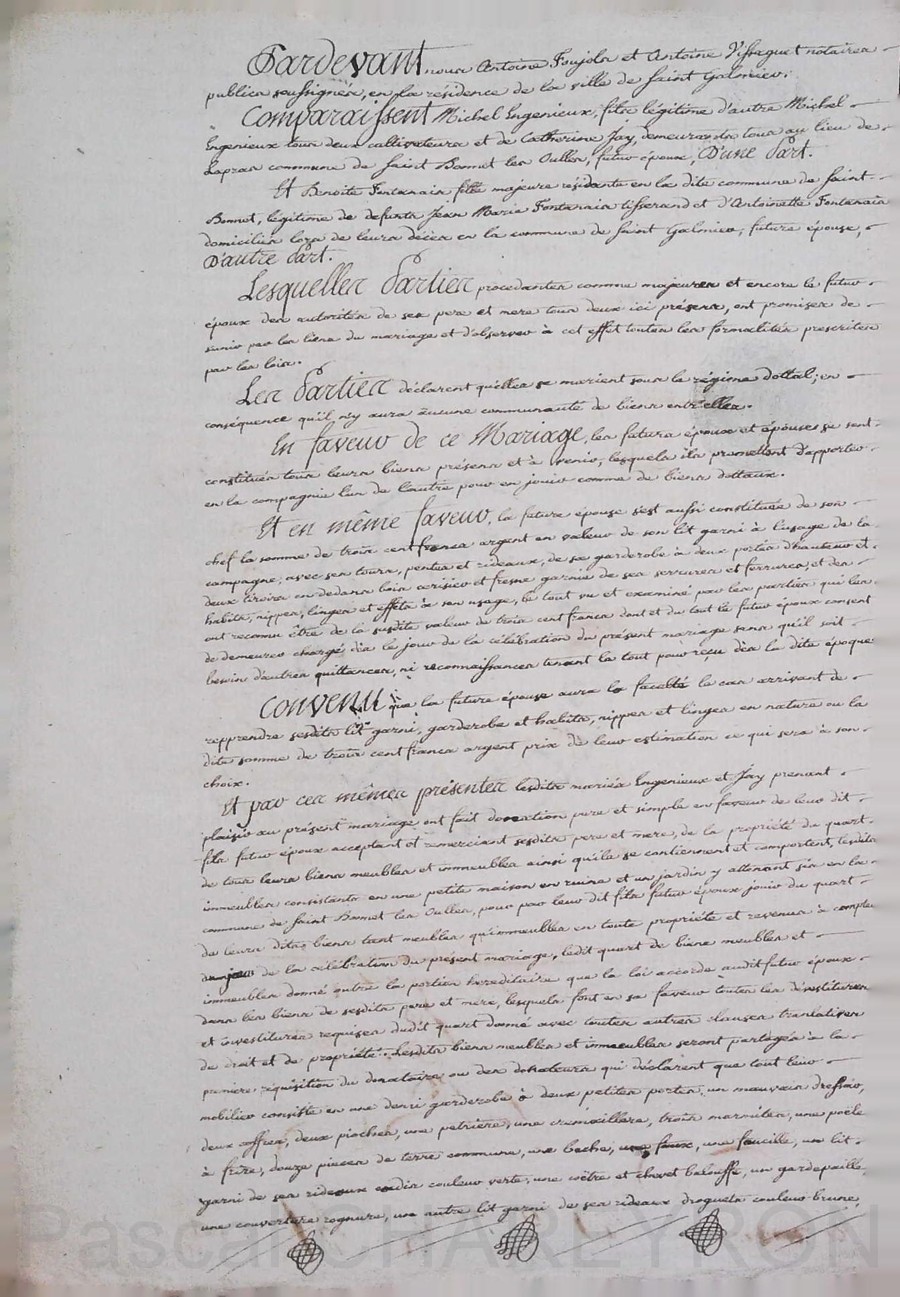 Pardevant nous Antoine Foujols et Antoine Vissaguet notaires
publics soussignés, en la résidence de la ville de Saint Galmier,
Comparaissent Michel Engenieux, fils légitime d'autre Michel
Engenieux tous deux cultivateurs et de Catherine Jay, demeurants tous au lieu de
Lapras commune de Saint Bonnet les Oulles, futur époux, D'une Part.
Et Benoite Fontanais fille majeure residante en la dite commune de Saint
Bonnet, légitime de defunts Jean Marie Fontanais tisserand et d'Antoinette Fontanais
domiciliés lors de leurs décès en la commune de Saint Galmier, future épouse,
D'autre Part.
Lesquelles Parties procedantes comme majeures et encore le futur
époux des autorités de ses pere et mere tous deux ici présens, ont promises de
s'unir par les liens du mariage et d'observer à cet effet toutes les formalités prescrites
par les lois.
Les Parties déclarent qu'elles se marient sous le régime dottal; en
conséquence qu'il n'y aura aucune communauté de biens entr'elles.
En faveur de ce Mariage, les futurs époux et épouses se sont
constitués tous leurs biens présens et à venir, lesquels ils promettent d'apporter
en la compagnie l'un de l'autre pour en jouir comme de biens dottaux.
Et en même faveur, la future épouse s'est aussi constituée de son
chef la somme de trois cent francs argent en valeur de son lit garni à l'usage de la
campagne, avec ses tours, pentes et rideaux, de sa garderobe à deux portes d'hauteur et
deux tiroirs en dedans bois cerisier et fresne garnie de ses serrures et ferrures, et des
habits, nippes, linges et effets à son usage, le tout vu et examiné par les parties qui les
ont reconnu être de la susdite valeur de trois cent francs dont et du tout le futur époux consent
de demeurer chargé, dès le jour de la célébration du présent mariage sans qu'il soit
besoin d'autres quittances, ni reconnaissances tenant le tout pour reçu dès la dite époque
Convenu que la future épouse aura la faculté le cas arrivant de
repprendre sesdits lit garni, garderobe et habits, nippes et linges en nature ou la
dite somme de trois cent francs argent prix de leur estimation ce qui sera à son
choix.
Et par ces mêmes présentes lesdits mariés Engenieux et Jay prenant
plaisir au présent mariage ont fait donation pure et simple en faveur de leur dit
fils futur époux acceptant et remerciant sesdits pere et mere, de la propriété du quart
de tous leurs biens meubles et immeubles ainsi qu'ils se contiennent et comportent, lesdits
immeubles consistants en une petite maison en ruine et un jardin y attenant sis en la
commune de Saint Bonnet les Oulles, pour par leur dit fils futur époux jouir du quart
de leurs dits biens tant meubles qu'immeubles en toute propriété et revenus à compter
du jour de la célébration du présent mariage, ledit quart de biens meubles et
immeubles donné outre la portion hereditaire que la loi accorde audit futur époux
dans les biens de sesdits pere et mere, lesquels font en sa faveur toutes les dévestitures
et investitures requises dudit quart donné avec toutes autres clauses translatives
de droit et de propriété. Lesdits biens meubles et immeubles seront partagés à la
premiere réquisition du donataire ou des donateurs qui déclarent que tout leur
mobilier consiste en une demi garderobe à deux petites portes, un mauvais dressoir,
deux coffres, deux pioches, une petriere, une cremaillere, trois marmites, une poële
à frire, douze pieces de terre commune, une beche, une faux, une faucille, un lit
garni de ses rideaux cadis couleur verte, une coëtre et chevet balouffe, un gardepaille,
une couverture rognure, un autre lit garni de ses rideaux droguets couleur brune,
Pascal CHAREYRON